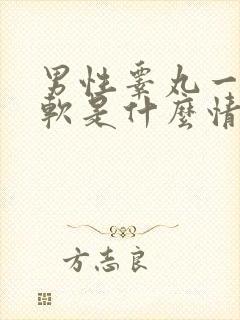 男性睾丸一
軟是什麼情
方志良